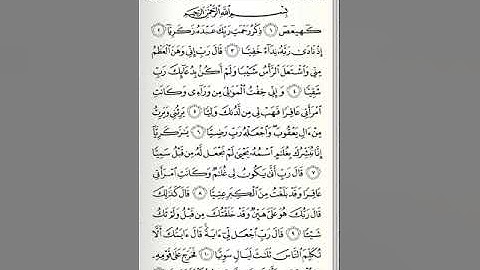 بِسْمِ اللَّهِ الرَّحْمَٰنِ الرَّحِيمِ
كٓهيعٓصٓ ١ ذِكْرُ رَحْمَتِ رَبِّكَ عَبْدَهُۥ زَكَرِيَّآ ٢
إِذْ نَادَىٰ رَبَّهُۥ نِدَآءً خَفِيًّا ٣ قَالَ رَبِّ إِنِّى وَهَنَ ٱلْعَظْمُ
مِنِّى وَٱشْتَعَلَ ٱلرَّأْسُ شَيْبًا وَلَمْ أَكُنۢ بِدُعَآئِكَ رَبِّ
شَقِيًّا ٤ وَإِنِّى خِفْتُ ٱلْمَوَٰلِىَ مِن وَرَآءِى وَكَانَتِ
ٱمْرَأَتِى عَاقِرًا فَهَبْ لِى مِن لَّدُنكَ وَلِيًّا ٥ يَرِثُنِى وَيَرِثُ
مِنْ ءَالِ يَعْقُوبَ ۖ وَٱجْعَلْهُ رَبِّ رَضِيًّا ٦ يَٰزَكَرِيَّآ
إِنَّا نُبَشِّرُكَ بِغُلَٰمٍ ٱسْمُهُۥ يَحْيَىٰ لَمْ نَجْعَل لَّهُۥ مِن قَبْلُ سَمِيًّا
٧ قَالَ رَبِّ أَنَّىٰ يَكُونُ لِى غُلَٰمٌ وَكَانَتِ ٱمْرَأَتِى
عَاقِرًا وَقَدْ بَلَغْتُ مِنَ ٱلْكِبَرِ عِتِيًّا ٨ قَالَ كَذَٰلِكَ
قَالَ رَبُّكَ هُوَ عَلَىَّ هَيِّنٌ وَقَدْ خَلَقْتُكَ مِن قَبْلُ وَلَمْ تَكُ
شَيْـًٔا ٩ قَالَ رَبِّ ٱجْعَل لِّىٓ ءَايَةً ۚ قَالَ ءَايَتُكَ أَلَّا
تُكَلِّمَ ٱلنَّاسَ ثَلَٰثَ لَيَالٍ سَوِيًّا ١٠ فَخَرَجَ عَلَىٰ قَوْمِهِۦ